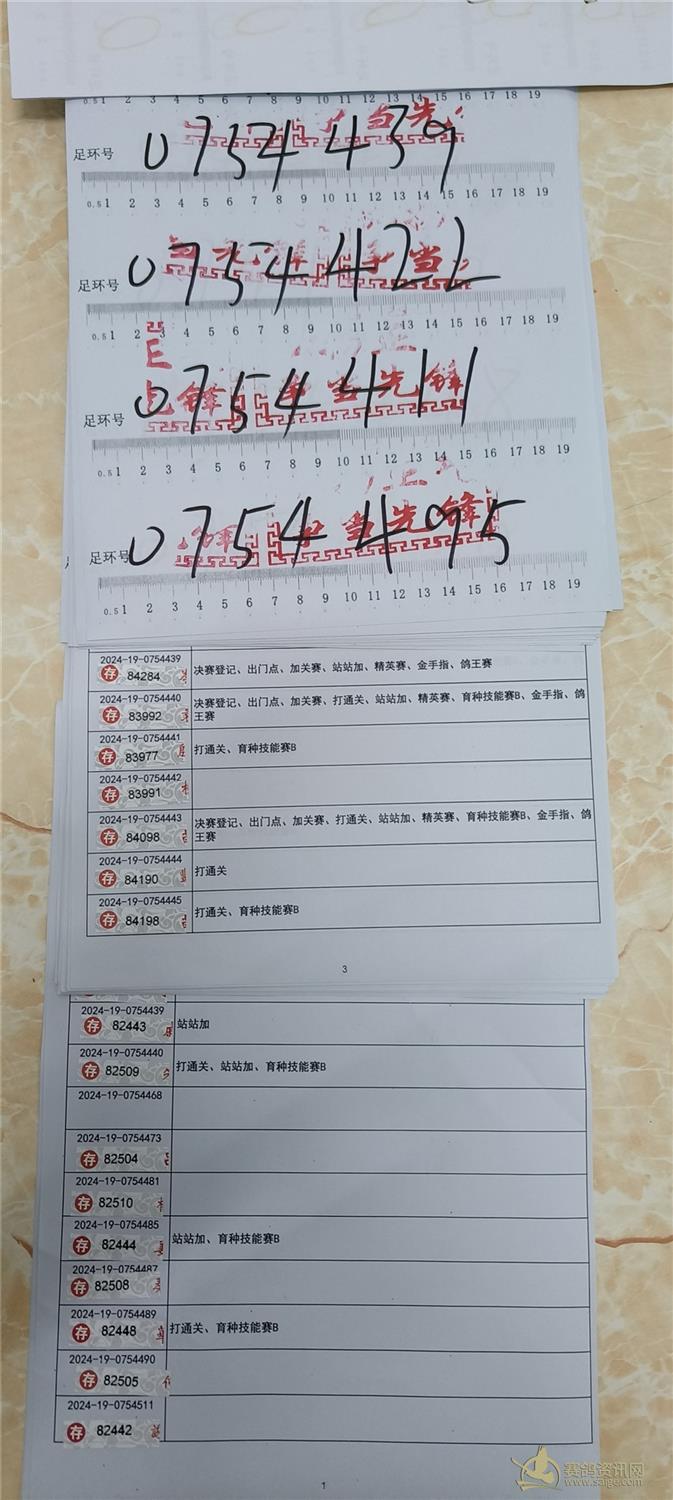 0.5 1 2 3 4 5 6 7 8 9 10 11 12 13 14 15 16 17 18 19
当先
足环号 0754439
0.5 1 2 3 4 5 6 7 8 9 10 11 12 13 14 15 16 17 18 19
当
足环号 0754422
0.5 1 2 3 4 5 6 7 8 9 10 11 12 13 14 15 16 17 18 19
锋 争当先锋
足环号 0754411
0.5 1 2 3 4 5 6 7 8 9 10 11 12 13 14 15 16 17 18 19
当先锋
足环号 0754495
0.5 1 2 3 4 5 6 7 8 9 10 11 12 13 14 15 16 17 18 19
2024-19-0754439
存 84284 决赛登记、出门点、加关赛、站站加、精英赛、金手指、鸽王赛
2024-19-0754440
存 83992 决赛登记、出门点、加关赛、打通关、站站加、精英赛、育种技能赛B、金手指、鸽
王赛
2024-19-0754441
存 83977 打通关、育种技能赛B
2024-19-0754442
存 83991
2024-19-0754443
存 84098 决赛登记、出门点、加关赛、打通关、站站加、精英赛、育种技能赛B、金手指、鸽
王赛
2024-19-0754444
存 84190 打通关
2024-19-0754445
存 84198 打通关、育种技能赛B
3
2024-19-0754439
存 82443 站站加
2024-19-0754440
存 82509 打通关、站站加、育种技能赛B
2024-19-0754468
2024-19-0754473
存 82504
2024-19-0754481
存 82510
2024-19-0754485
存 82444 站站加、育种技能赛B
2024-19-0754487
存 82508
2024-19-0754489
存 82448 打通关、育种技能赛B
2024-19-0754490
存 82505
2024-19-0754511
存 82442
1
赛鸽资讯网
www.saige.com